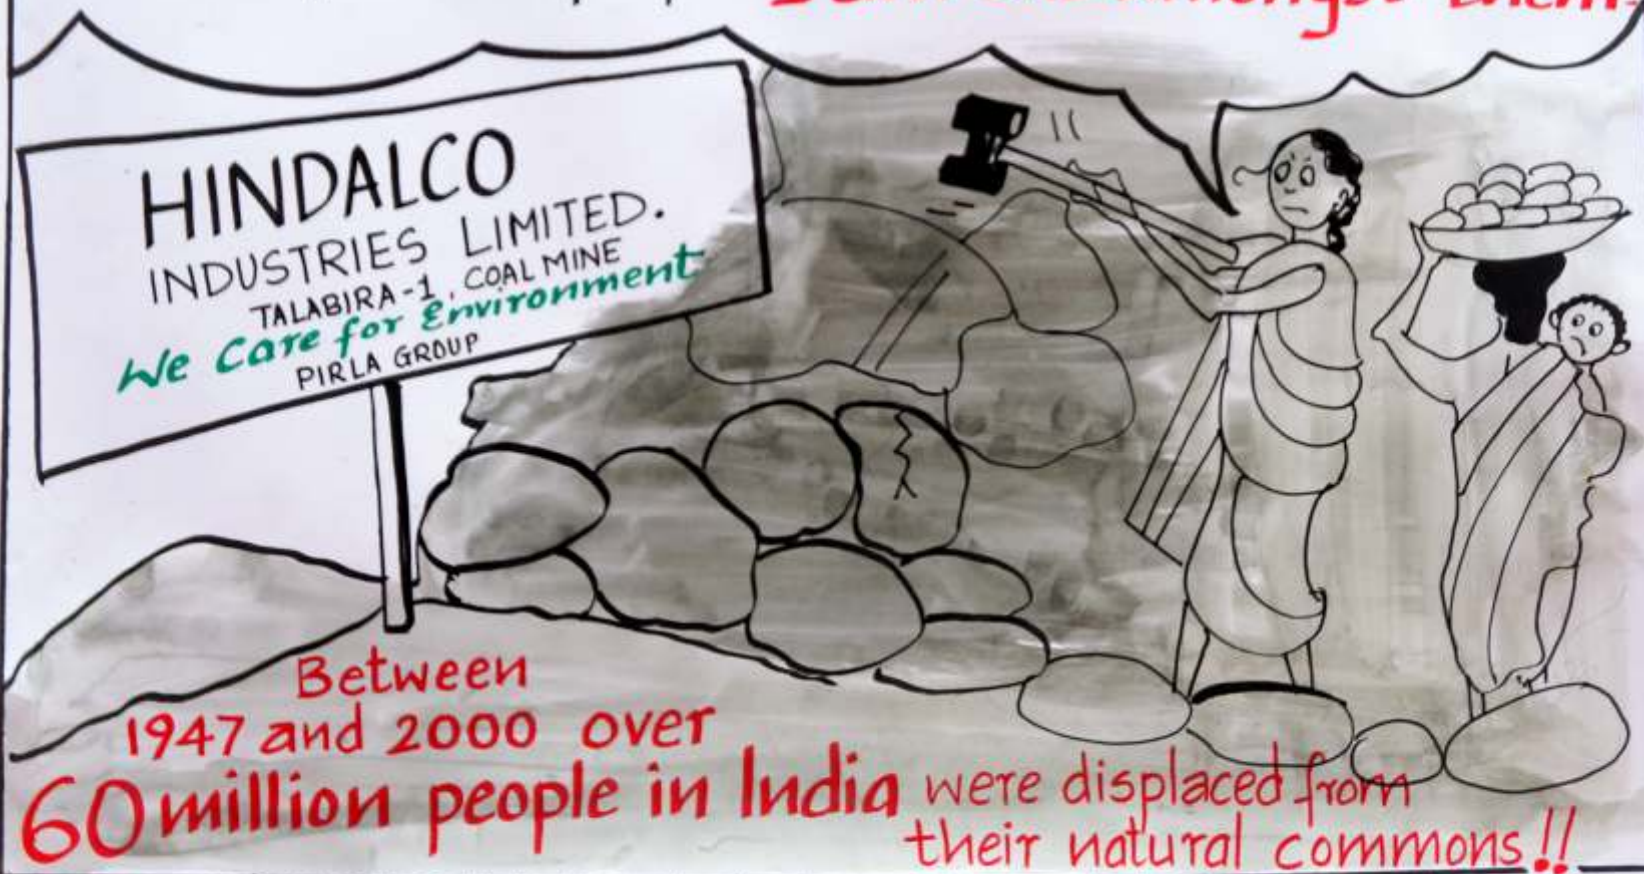 amongst them.
HINDALCO
INDUSTRIES LIMITED.
TALABIRA-1, COAL MINE
We Care for Environment
PIRLA GROUP
Between
1947 and 2000 over
60 million people in India were displaced from
their natural commons!!